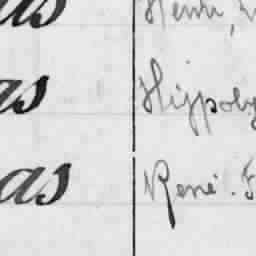 as Henri,
as Hippoly
as René. F